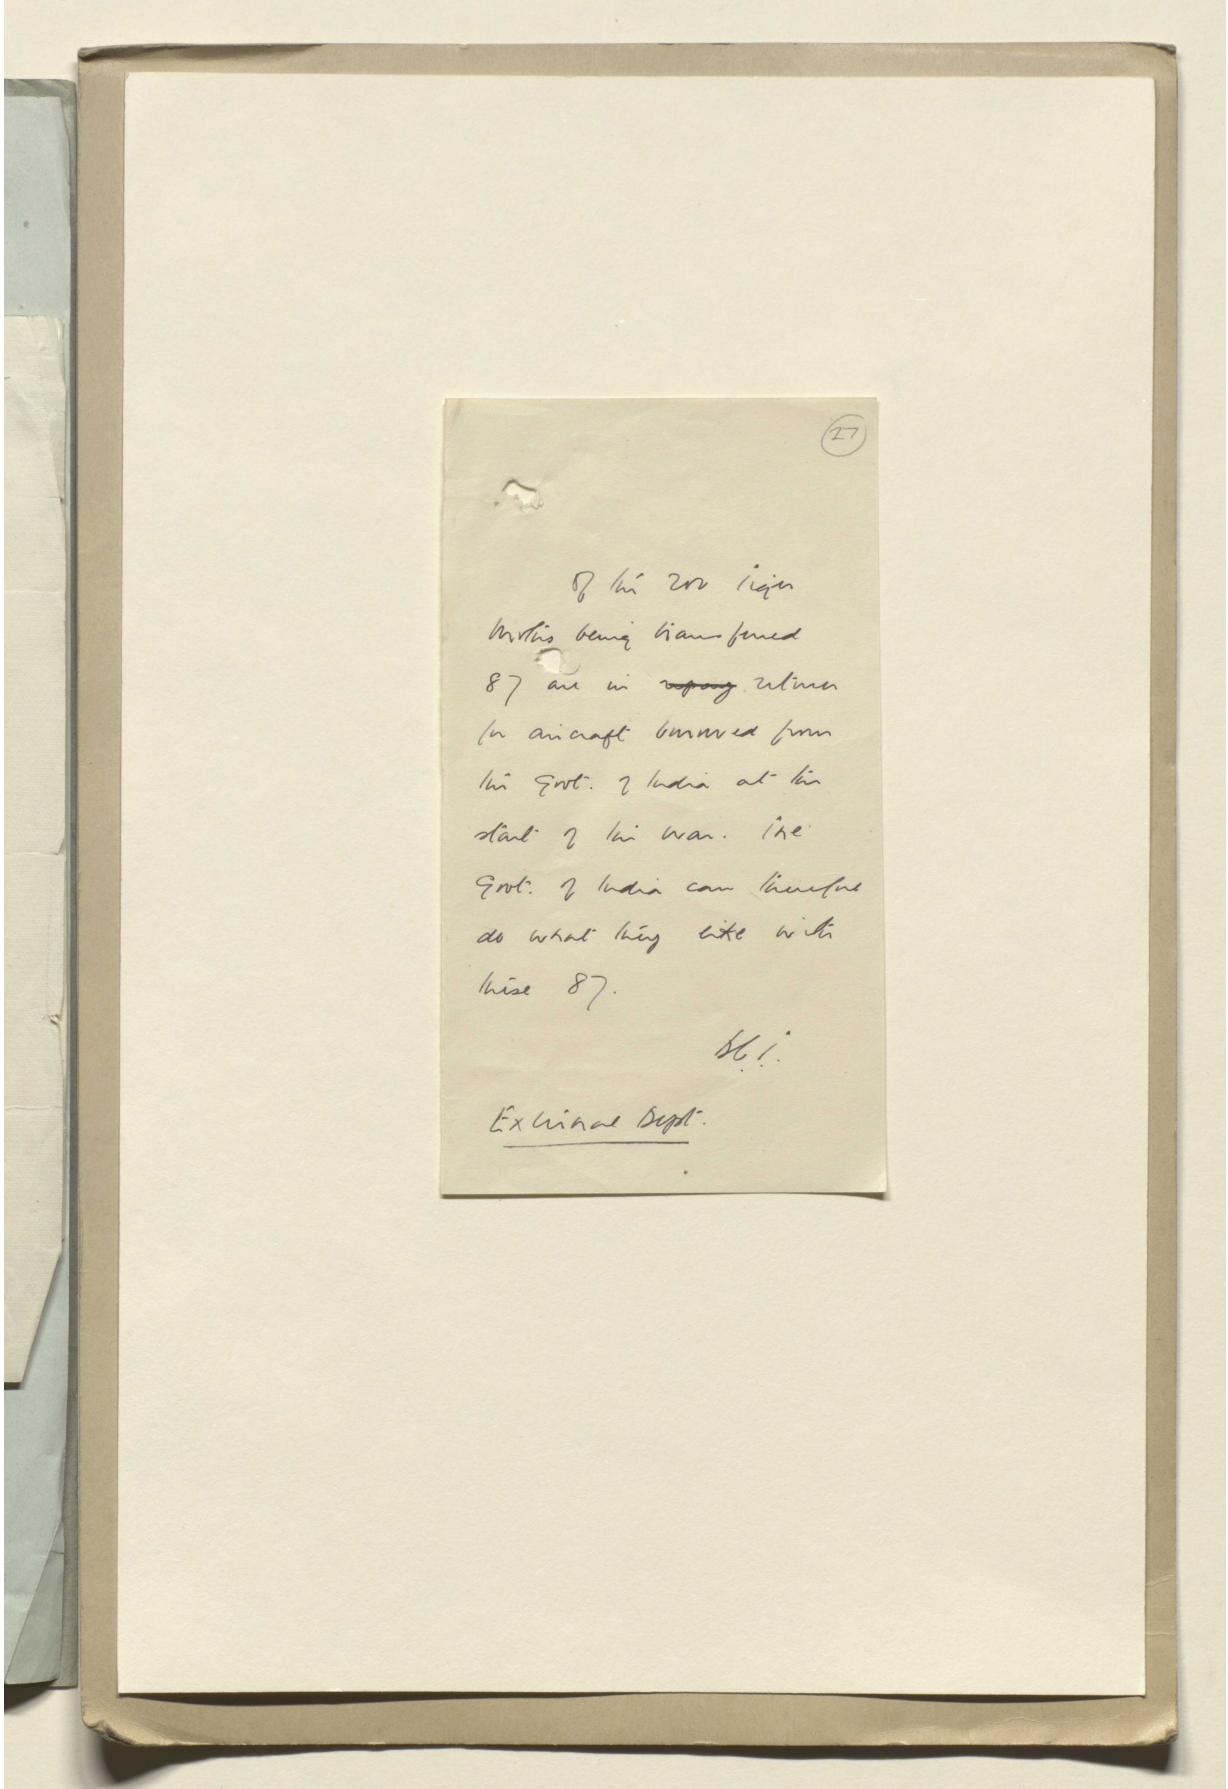 27
Of the 200 Tiger
Moths being transferred
87 are in return
for aircraft borrowed from
the Govt. of India at the
start of the war. The
Govt. of India can therefore
do what they like with
these 87.
External Dept.